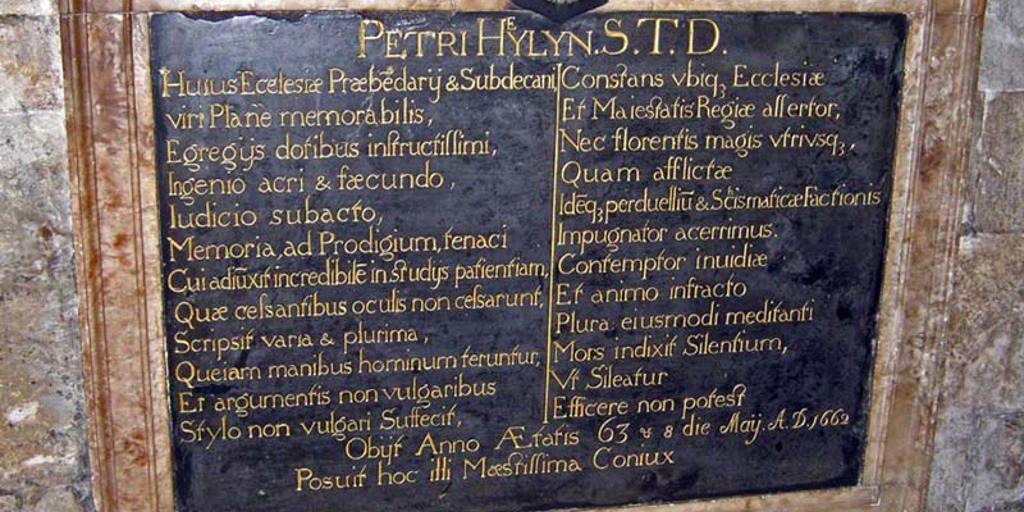 PETRI HEYLYN. S.T.D.
Huius Ecclesiæ Præbēdarij & Subdecani,
viri Planē memorabilis,
Egregijs dotibus instructissimi,
Ingenio acri & fæcundo,
Iudicio subacto,
Memoria, ad Prodigium, tenaci
Cui adiūxit incredibilē in studys patientiam,
Quæ cessantibus oculis non cessarunt,
Scripsit varia & plurima,
Queiam manibus hominum teruntur,
Et argumentis non vulgaribus
Stylo non vulgari Suffecit,
Constans vbiq3 Ecclesiæ
Et Maiestatis Regiæ assertor,
Nec florentis magis vtrivsq3,
Quam afflictæ
Idēq3 perduelliū & Scismaticæ Factionis
Impugnator acerrimus.
Contemptor inuidiæ
Et animo infracto
Plura eiusmodi meditanti
Mors indixit Silentium,
Vt Sileatur
Efficere non potest
Obijt Anno Ætatis 63 & 8 die Maij. A.D. 1662
Posuit hoc illi Mœstissima Coniux